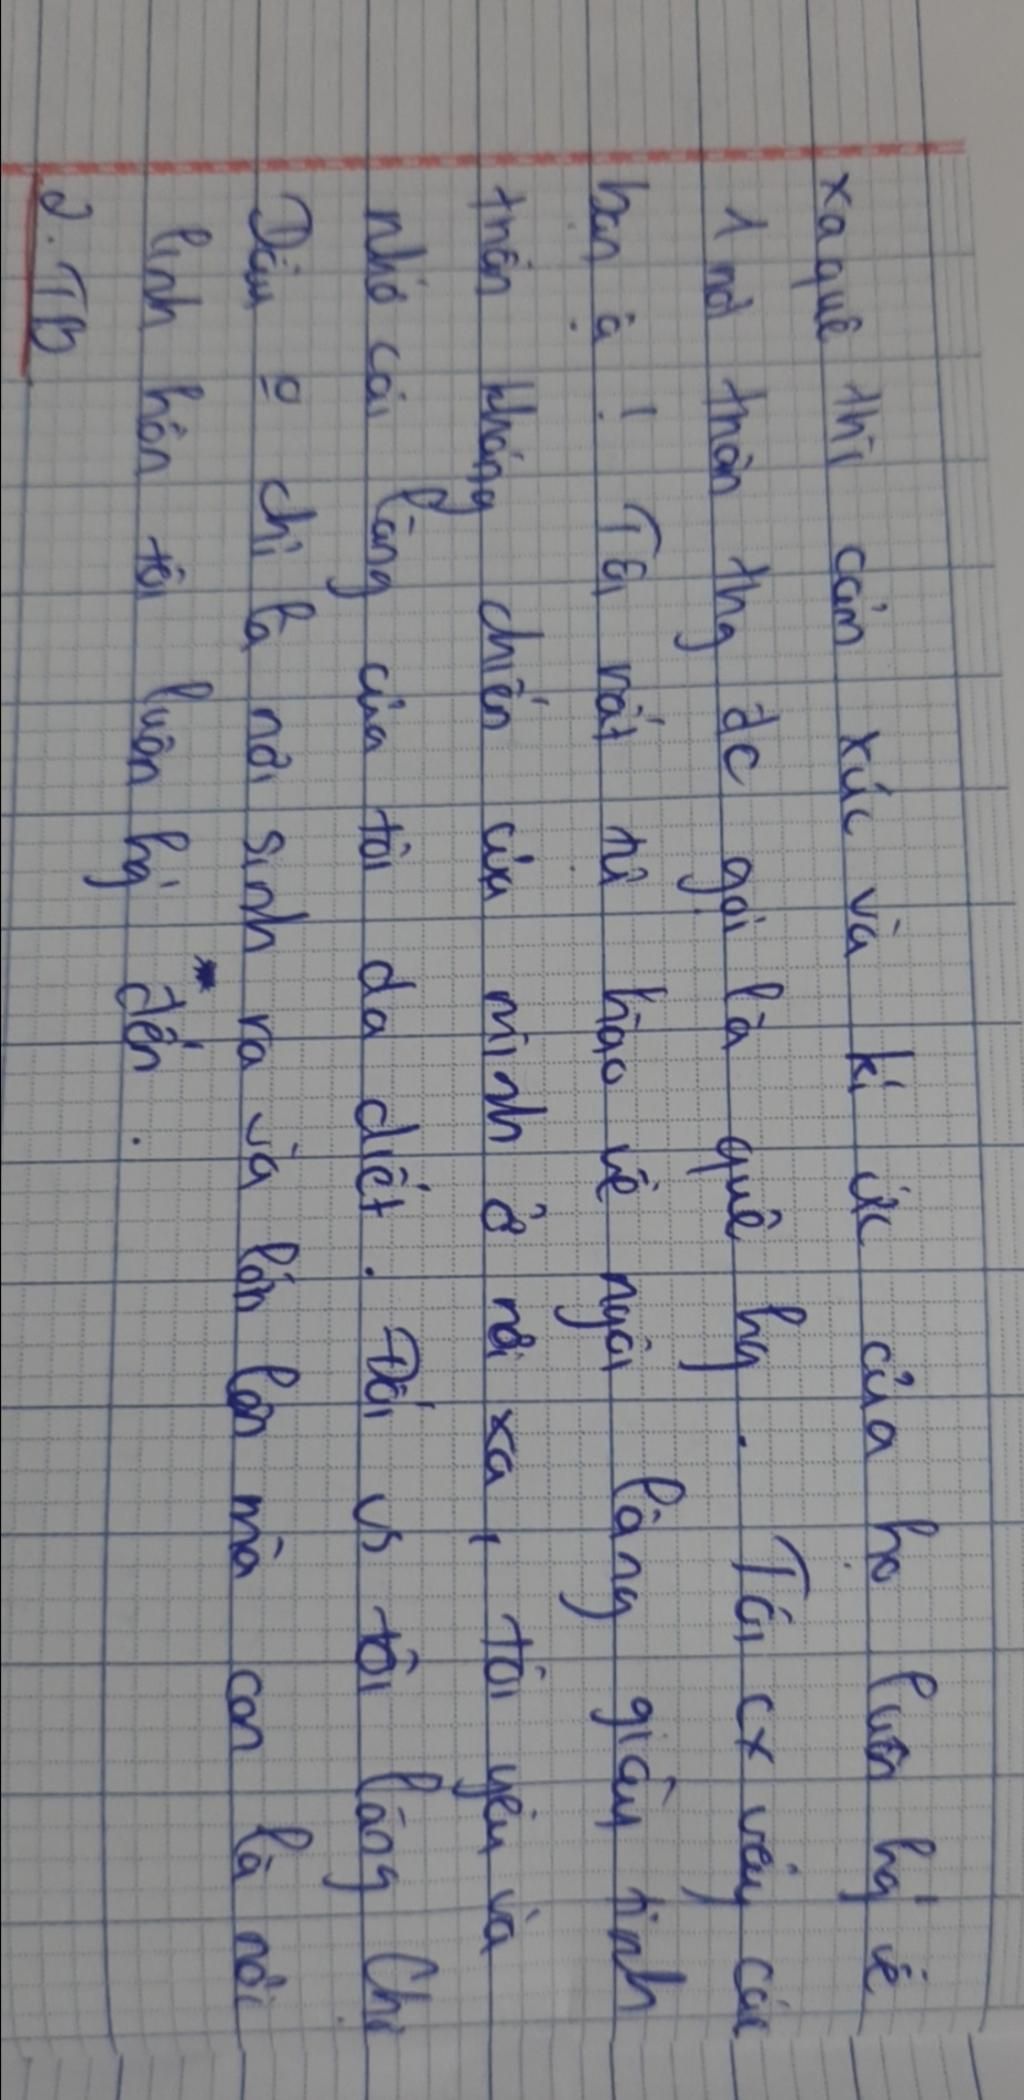 xa quê thì cảm xúc và kí ức của họ luôn hg' về
1 nơi thân thg đc gọi là quê hg. Tôi cx vậy các
bạn ạ! Tôi rất tự hào về ngôi làng giàu tinh
thần kháng chiến của mình ở nơi xa, tôi yêu và
nhớ cái làng của tôi da diết. Đối vs tôi làng Chợ
Dầu o chỉ là nơi sinh ra và lớn lên mà còn là nơi
linh hồn tôi luôn hg' đến.
2. TB